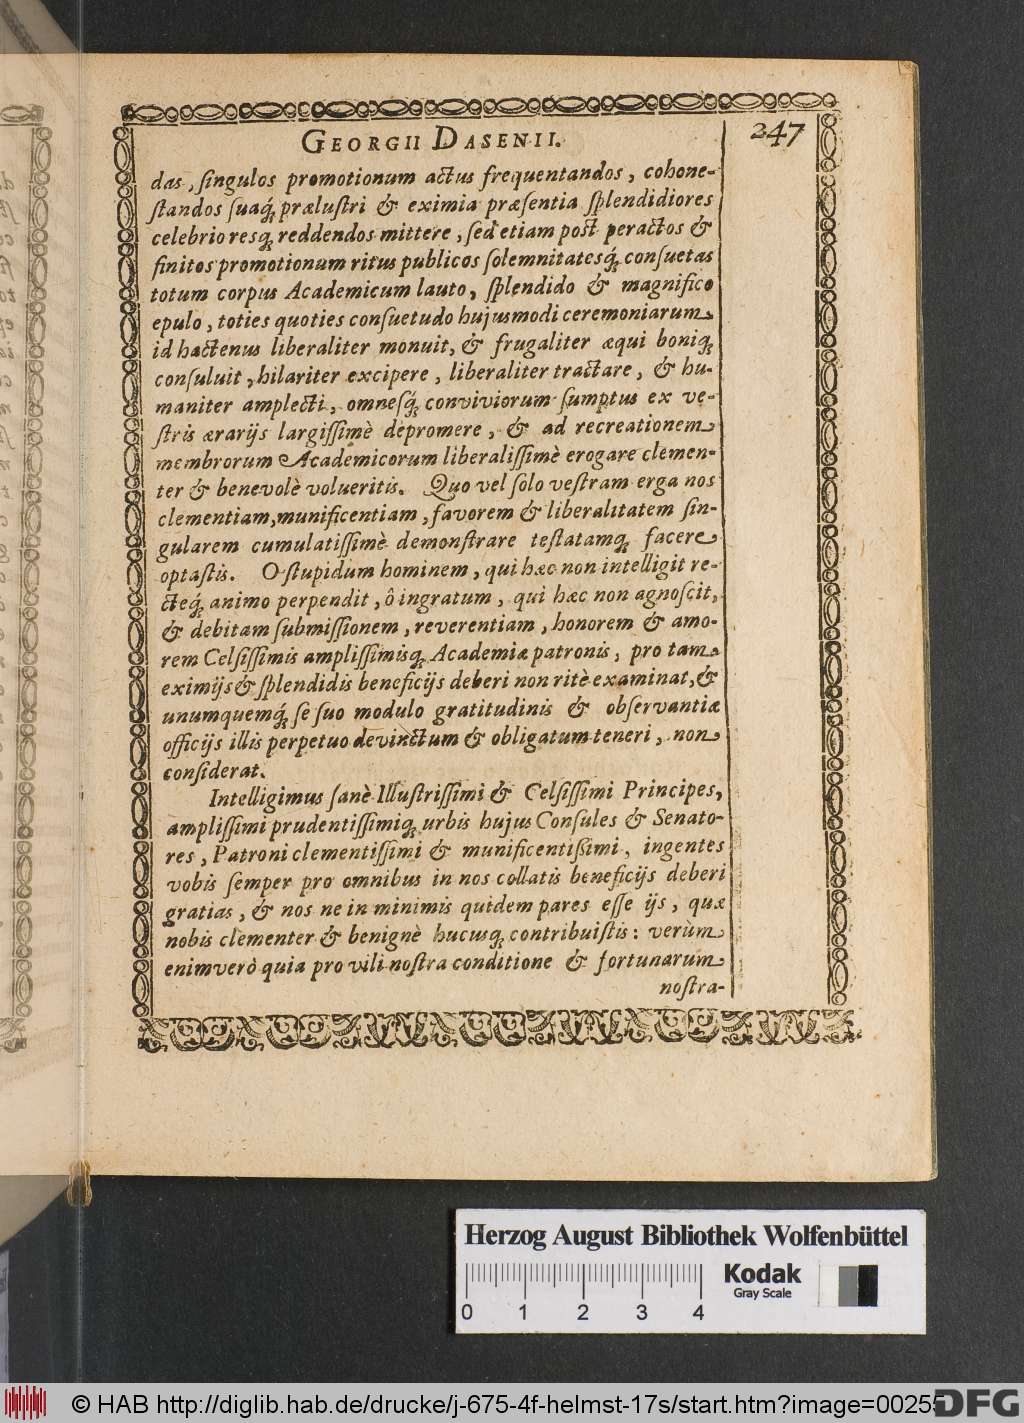 GEORGII DASENII.
247
das, ſingulos promotionum actus frequentandos, cohone-
ſtandos ſuaq́; præluſtri & eximia præſentia ſplendidiores
celebrioresq́; reddendos mittere, ſed etiam poſt peractos &
finitos promotionum ritus publicos ſolemnitatesq́; conſuetas
totum corpus Academicum lauto, ſplendido & magnifico
epulo, toties quoties conſuetudo hujusmodi ceremoniarum
id hactenus liberaliter monuit, & frugaliter æqui boniq́;
conſuluit, hilariter excipere, liberaliter tractare, & hu-
maniter amplecti, omnesq́; conviviorum ſumptus ex ve-
ſtris ærarijs largiſſimè depromere, & ad recreationem
membrorum Academicorum liberaliſſimè erogare clemen-
ter & benevolè volueritis. Quo vel ſolo veſtram erga nos
clementiam, munificentiam, favorem & liberalitatem ſin-
gularem cumulatiſſimè demonſtrare teſtatamq́; facere
optaſtis. O ſtupidum hominem, qui hæc non intelligit re-
cteq́; animo perpendit, ô ingratum, qui hæc non agnoſcit,
& debitam ſubmiſſionem, reverentiam, honorem & amo-
rem Celſiſſimis ampliſſimisq́; Academiæ patronis, pro tam
eximijs & ſplendidis beneficijs deberi non ritè examinat, &
unumquemq́; ſe ſuo modulo gratitudinis & obſervantiæ
officijs illis perpetuo devinctum & obligatum teneri, non
conſiderat.
Intelligimus ſanè Illuſtriſſimi & Celſiſſimi Principes,
ampliſſimi prudentiſſimiq́; urbis hujus Conſules & Senato-
res, Patroni clementiſſimi & munificentißimi, ingentes
vobis ſemper pro omnibus in nos collatis beneficijs deberi
gratias, & nos ne in minimis quidem pares eſſe ijs, quæ
nobis clementer & benignè hucusq́; contribuiſtis: verùm
enimverò quia pro vili noſtra conditione & fortunarum
noſtra-
Herzog August Bibliothek Wolfenbüttel
Kodak
Gray Scale
0 1 2 3 4
© HAB http://diglib.hab.de/drucke/j-675-4f-helmst-17s/start.htm?image=00255
DFG